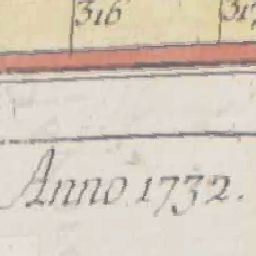 316 317
Anno 1732.